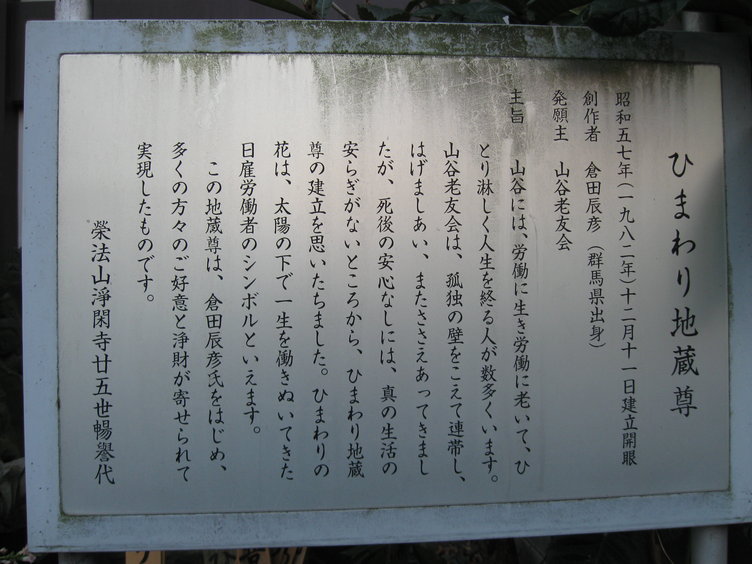 ひまわり地蔵尊
昭和五七年（一九八二年）十二月十一日建立開眼
創作者　倉田辰彦（群馬県出身）
発願主　山谷老友会
主旨　山谷には、労働に生き労働に老いて、ひ
とり淋しく人生を終る人が数多くいます。
山谷老友会は、孤独の壁をこえて連帯し、
はげましあい、またささえあってきまし
たが、死後の安心なしには、真の生活の
安らぎがないところから、ひまわり地蔵
尊の建立を思いたちました。ひまわりの
花は、太陽の下で一生を働きぬいてきた
日雇労働者のシンボルといえます。
この地蔵尊は、倉田辰彦氏をはじめ、
多くの方々のご好意と浄財が寄せられて
実現したものです。
榮法山淨閑寺廿五世暢譽代